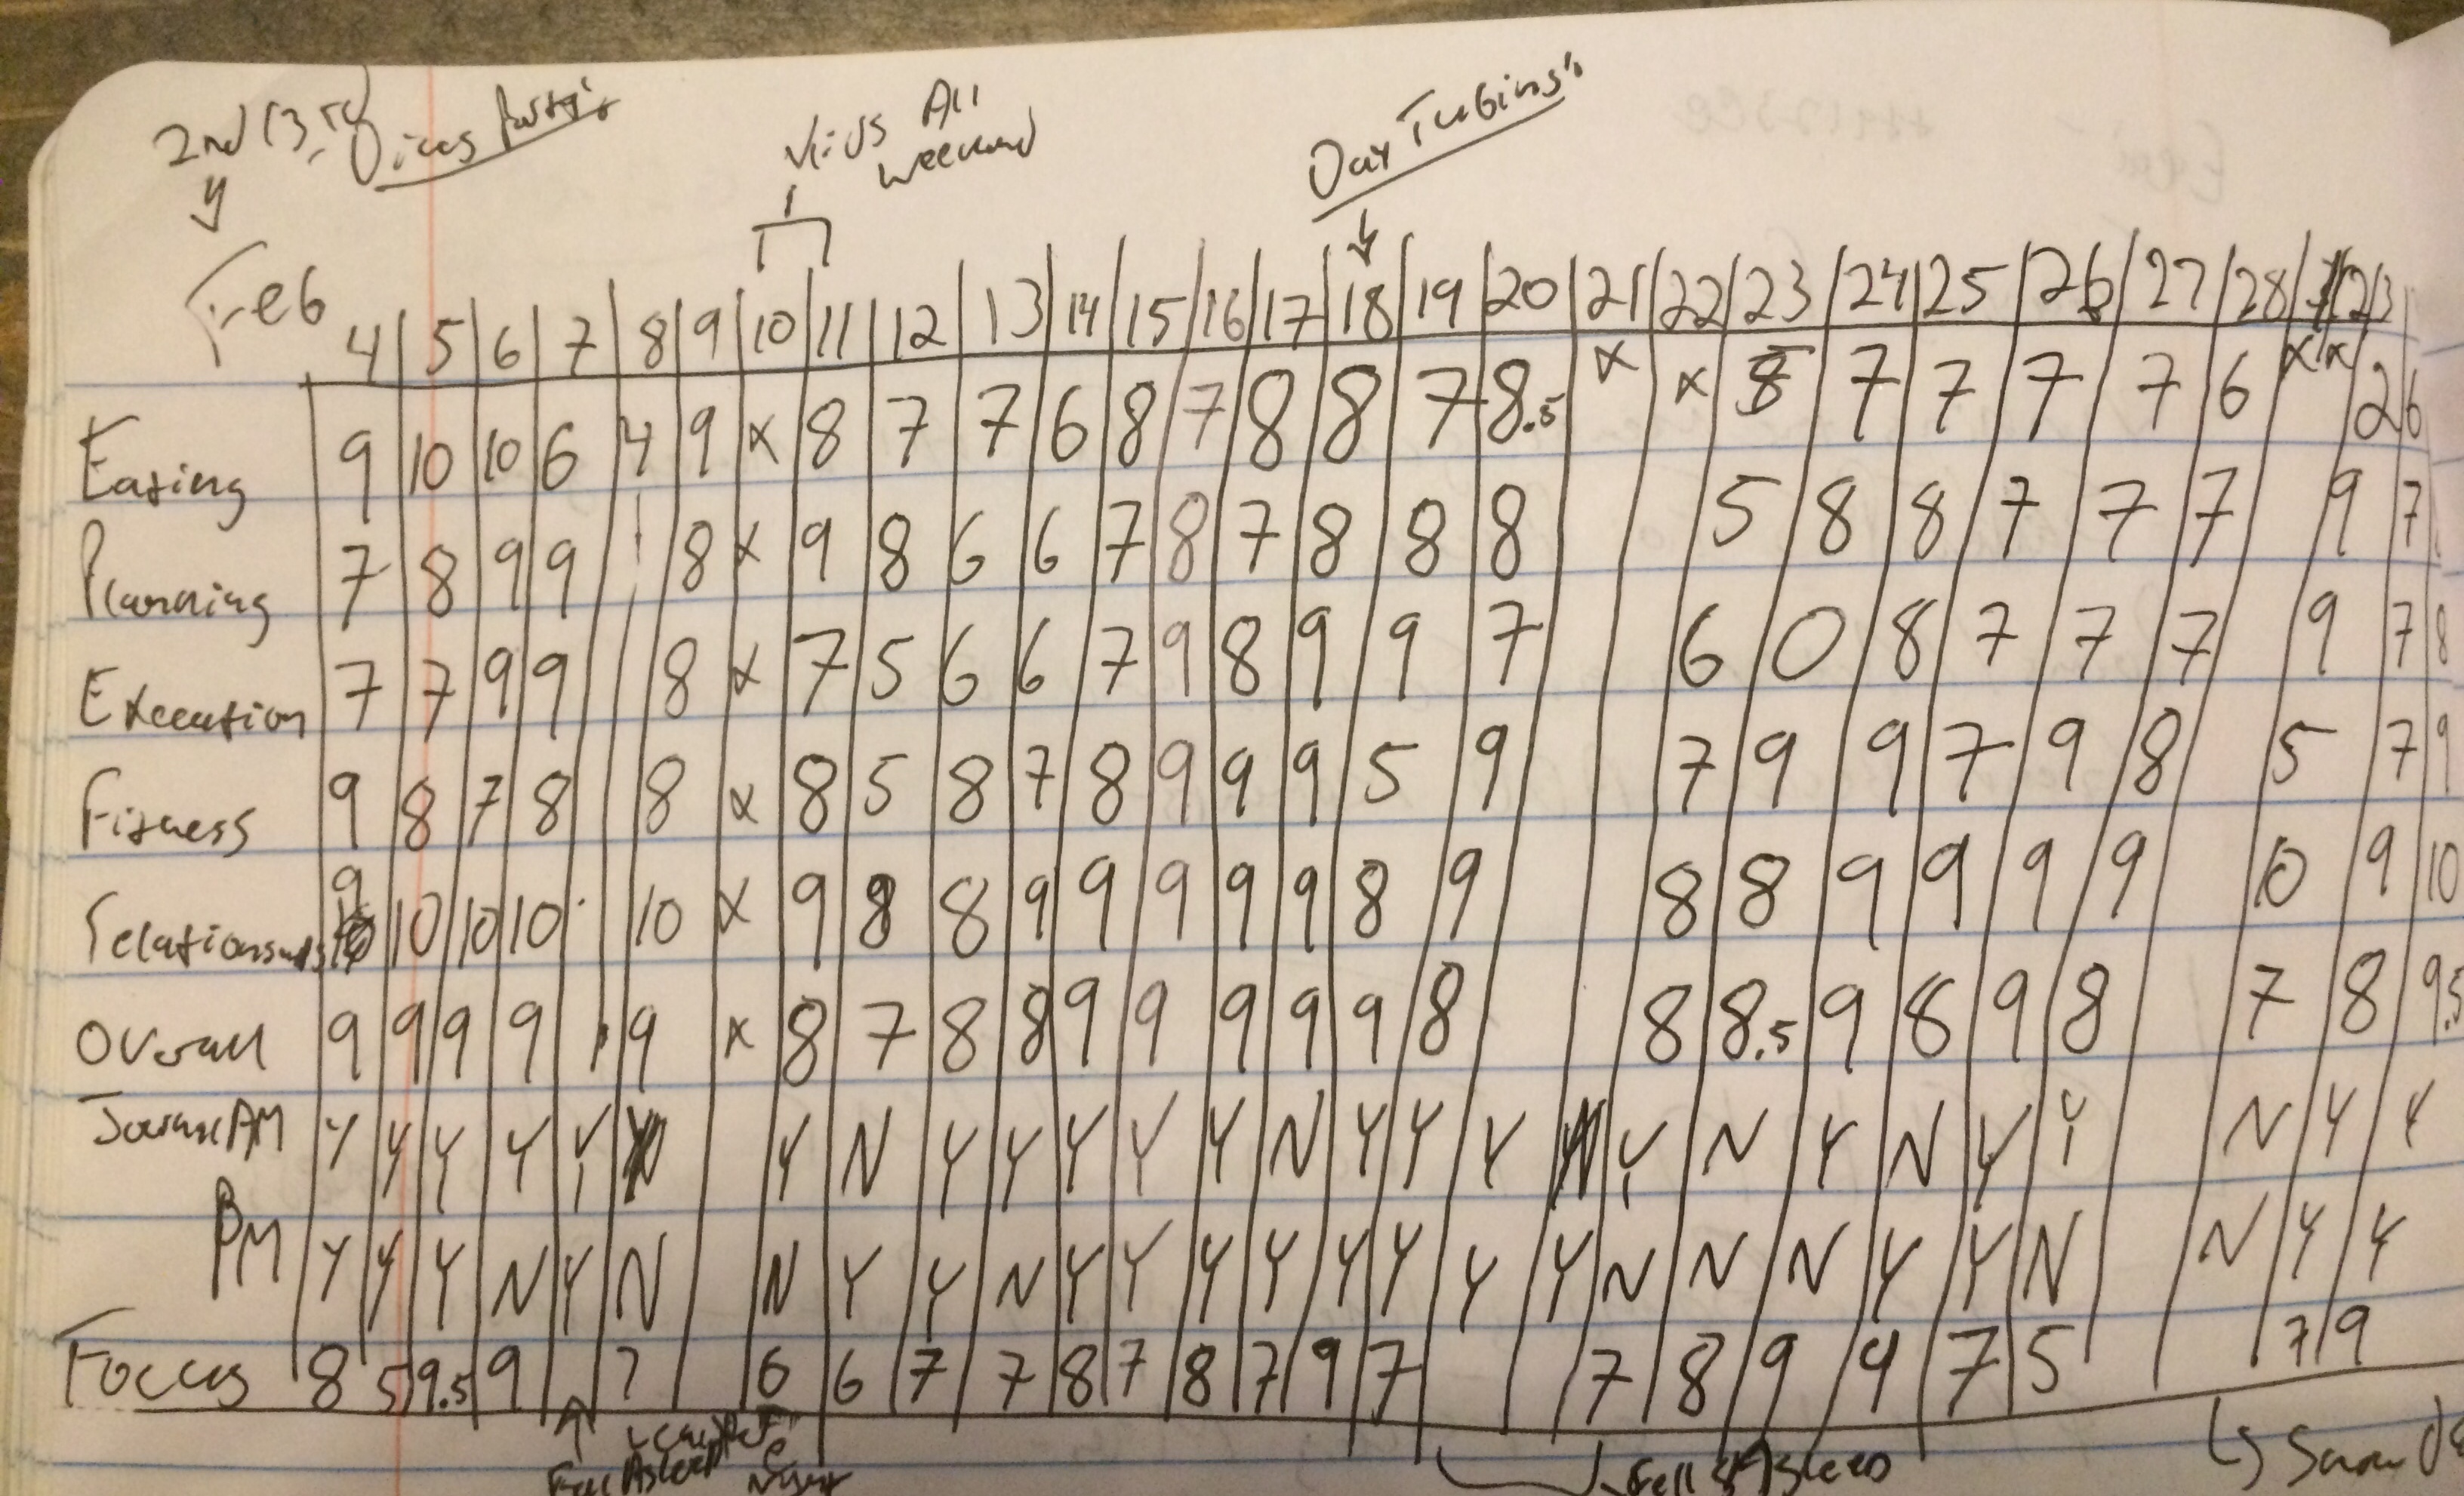 2nd
Virus All weekend
Day Tubing
Feb 4 5 6 7 8 9 10 11 12 13 14 15 16 17 18 19 20 21 22 23 24 25 26 27 28 2 3
Eating 9 10 10 6 4 9 x 8 7 7 6 8 7 8 8 7 8.5 x x 7 7 7 7 6 x x 2 6
Planning 7 8 9 9 8 x 9 8 6 6 7 8 7 8 8 8 5 8 8 7 7 7 9 7
Execution 7 7 9 9 8 x 7 5 6 6 7 9 8 9 9 7 6 0 8 7 7 7 9 7 8
Fitness 9 8 7 8 8 x 8 5 8 7 8 9 9 9 5 9 7 9 9 7 9 8 5 7 9
relationships 9 10 10 10 10 x 9 8 8 9 9 9 9 9 8 9 8 8 9 9 9 9 10 9 10
Overall 9 9 9 9 9 x 8 7 8 8 9 9 9 9 9 8 8 8.5 9 8 9 8 7 8 9.5
Journal AM Y Y Y Y Y N Y N Y Y Y Y Y N Y Y Y N Y N Y N Y Y N Y Y
PM Y Y Y N Y N N Y Y N Y Y Y Y Y Y Y Y N N N Y Y N N Y Y
Focus 8 5 9.5 9 7 6 6 7 7 8 7 8 7 9 7 7 8 9 4 7 5 7 9
Fell Asleep
Fell Asleep